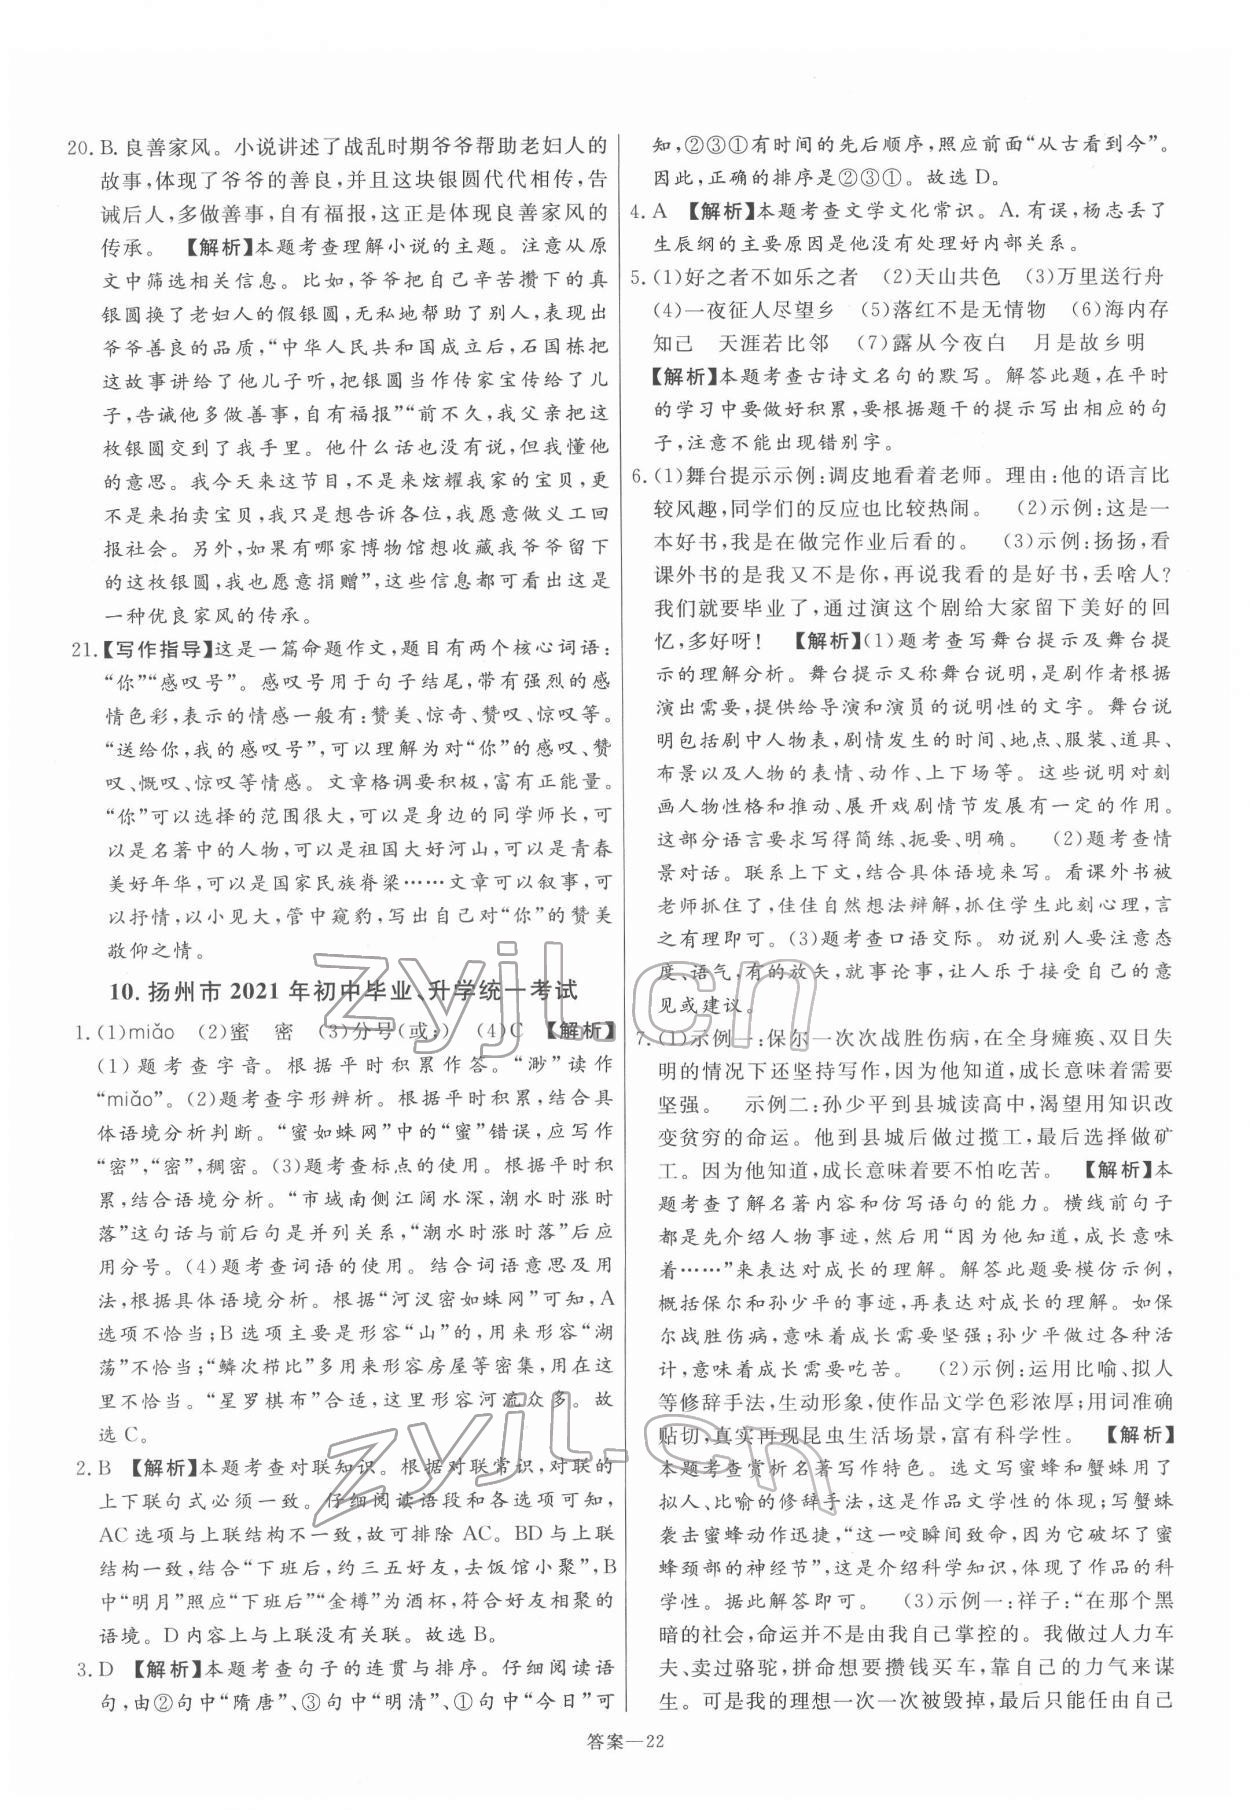 20. B. 良善家风。小说讲述了战乱时期爷爷帮助老妇人的
故事,体现了爷爷的善良,并且这块银圆代代相传,告
诫后人,多做善事,自有福报,这正是体现良善家风的
传承。 【解析】本题考查理解小说的主题。注意从原
文中筛选相关信息。比如,爷爷把自己辛苦攒下的真
银圆换了老妇人的假银圆,无私地帮助了别人,表现出
爷爷善良的品质,“中华人民共和国成立后,石国栋把
这故事讲给了他儿子听,把银圆当作传家宝传给了儿
子,告诫他多做善事,自有福报”“前不久,我父亲把这
枚银圆交到了我手里。他什么话也没有说,但我懂他
的意思。我今天来这节目,不是来炫耀我家的宝贝,更
不是来拍卖宝贝,我只是想告诉各位,我愿意做义工回
报社会。另外,如果有哪家博物馆想收藏我爷爷留下
的这枚银圆,我也愿意捐赠”,这些信息都可看出这是
一种优良家风的传承。
21.【写作指导】这是一篇命题作文,题目有两个核心词语:
“你”“感叹号”。感叹号用于句子结尾,带有强烈的感
情色彩,表示的情感一般有:赞美、惊奇、赞叹、惊叹等。
“送给你,我的感叹号”,可以理解为对“你”的感叹、赞
叹、慨叹、惊叹等情感。文章格调要积极,富有正能量。
“你”可以选择的范围很大,可以是身边的同学师长,可
以是名著中的人物,可以是祖国大好河山,可以是青春
美好年华,可以是国家民族脊梁……文章可以叙事,可
以抒情,以小见大,管中窥豹,写出自己对“你”的赞美
敬仰之情。
10. 扬州市 2021 年初中毕业、升学统一考试
1. (1)miǎo (2)蜜 密 (3)分号(或;) (4)C 【解析】
(1)题考查字音。根据平时积累作答。“渺”读作
“miǎo”。(2)题考查字形辨析。根据平时积累,结合具
体语境分析判断。“蜜如蛛网”中的“蜜”错误,应写作
“密”,“密”,稠密。(3)题考查标点的使用。根据平时积
累,结合语境分析。“市域南侧江阔水深,潮水时涨时
落”这句话与前后句是并列关系,“潮水时涨时落”后应
用分号。(4)题考查词语的使用。结合词语意思及用
法,根据具体语境分析。根据“河汊密如蛛网”可知,A
选项不恰当;B 选项主要是形容“山”的,用来形容“湖
荡”不恰当;“鳞次栉比”多用来形容房屋等密集,用在这
里不恰当。“星罗棋布”合适,这里形容河流众多。故
选 C。
2. B 【解析】本题考查对联知识。根据对联常识,对联的
上下联句式必须一致。仔细阅读语段和各选项可知,
AC 选项与上联结构不一致,故可排除 AC。BD 与上联
结构一致,结合“下班后,约三五好友,去饭馆小聚”,B
中“明月”照应“下班后”“金樽”为酒杯,符合好友相聚的
语境。D 内容上与上联没有关联。故选 B。
3. D 【解析】本题考查句子的连贯与排序。仔细阅读语
句,由②句中“隋唐”、③句中“明清”、①句中“今日”可
知,②③①有时间的先后顺序,照应前面“从古看到今”。
因此,正确的排序是②③①。故选 D。
4. A 【解析】本题考查文学文化常识。A. 有误,杨志丢了
生辰纲的主要原因是他没有处理好内部关系。
5. (1)好之者不如乐之者 (2)天山共色 (3)万里送行舟
(4)一夜征人尽望乡 (5)落红不是无情物 (6)海内存
知己 天涯若比邻 (7)露从今夜白 月是故乡明
【解析】本题考查古诗文名句的默写。解答此题,在平时
的学习中要做好积累,要根据题干的提示写出相应的句
子,注意不能出现错别字。
6. (1)舞台提示示例:调皮地看着老师。理由:他的语言比
较风趣,同学们的反应也比较热闹。 (2)示例:这是一
本好书,我是在做完作业后看的。 (3)示例:扬扬,看
课外书的是我又不是你,再说我看的是好书,丢啥人?
我们就要毕业了,通过演这个剧给大家留下美好的回
忆,多好呀! 【解析】(1)题考查写舞台提示及舞台提
示的理解分析。舞台提示又称舞台说明,是剧作者根据
演出需要,提供给导演和演员的说明性的文字。舞台说
明包括剧中人物表,剧情发生的时间、地点、服装、道具、
布景以及人物的表情、动作、上下场等。这些说明对刻
画人物性格和推动、展开戏剧情节发展有一定的作用。
这部分语言要求写得简练、扼要、明确。 (2)题考查情
景对话。联系上下文,结合具体语境来写。看课外书被
老师抓住了,佳佳自然想法辩解,抓住学生此刻心理,言
之有理即可。(3)题考查口语交际。劝说别人要注意态
度、语气,有的放矢,以事论事,让人乐于接受自己的意
见或建议。
7. (1)示例一:保尔一次次战胜伤病,在全身瘫痪、双目失
明的情况下还坚持写作,因为他知道,成长意味着需要
坚强。 示例二:孙少平到县城读高中,渴望用知识改
变贫穷的命运。他到县城后做过揽工,最后选择做矿
工。因为他知道,成长意味着要不怕吃苦。 【解析】本
题考查了解名著内容和仿写语句的能力。横线前句子
都是先介绍人物事迹,然后用“因为他知道,成长意味
着……”来表达对成长的理解。解答此题要模仿示例,
概括保尔和孙少平的事迹,再表达对成长的理解。如保
尔战胜伤病,意味着成长需要坚强;孙少平做过各种活
计,意味着成长需要吃苦。 (2)示例:运用比喻、拟人
等修辞手法,生动形象,使作品文学色彩浓厚;用词准确
贴切,真实再现昆虫生活场景,富有科学性。 【解析】
本题考查赏析名著写作特色。选文写蜜蜂和蟹蛛用了
拟人、比喻的修辞手法,这是作品文学性的体现;写蟹蛛
袭击蜜蜂动作迅捷,“这一咬瞬间致命,因为它破坏了蜜
蜂颈部的神经节”,这是介绍科学知识,体现了作品的科
学性。据此解答即可。 (3)示例一:祥子:“在那个黑
暗的社会,命运并不是由我自己掌控的。我做过人力车
夫、卖过骆驼,拼命想要攒钱买车,靠自己的力气来谋
生。可是我的理想一次一次被毁掉,最后只能任由自己
答案—22
zyjl.cn
zyjl.cn